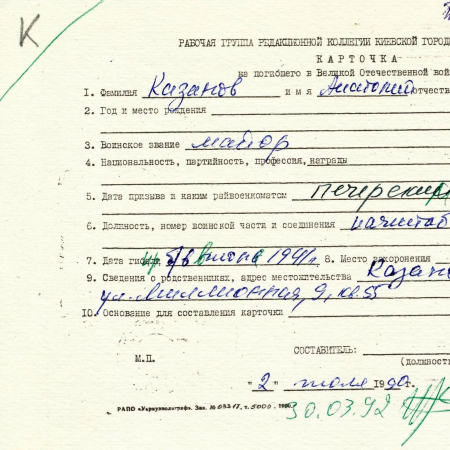 К
РАБОЧАЯ ГРУППА РЕДАКЦИОННОЙ КОЛЛЕГИИ КИЕВСКОЙ ГОРО
КАРТОЧКА
на погибшего в Великой Отечественной вой
1. Фамилия Казанов имя Анатолий отчеств
2. Год и место рождения
3. Воинское звание майор
4. Национальность, партийность, профессия, награды
5. Дата призыва и каким райвоенкоматом печерски
6. Должность, номер воинской части и соединения начштаб
7. Дата 1941г. 8. Место захоронения
9. Сведения о родственниках, адрес местожительства Казано
ул. Миллионная, 9, кв. 55
10. Основание для составления карточки
СОСТАВИТЕЛЬ:
М.П. (должност
"2" июля 1990г.
РАПО «Укрвузполиграф». Зак. т. 5000.
30.03.92